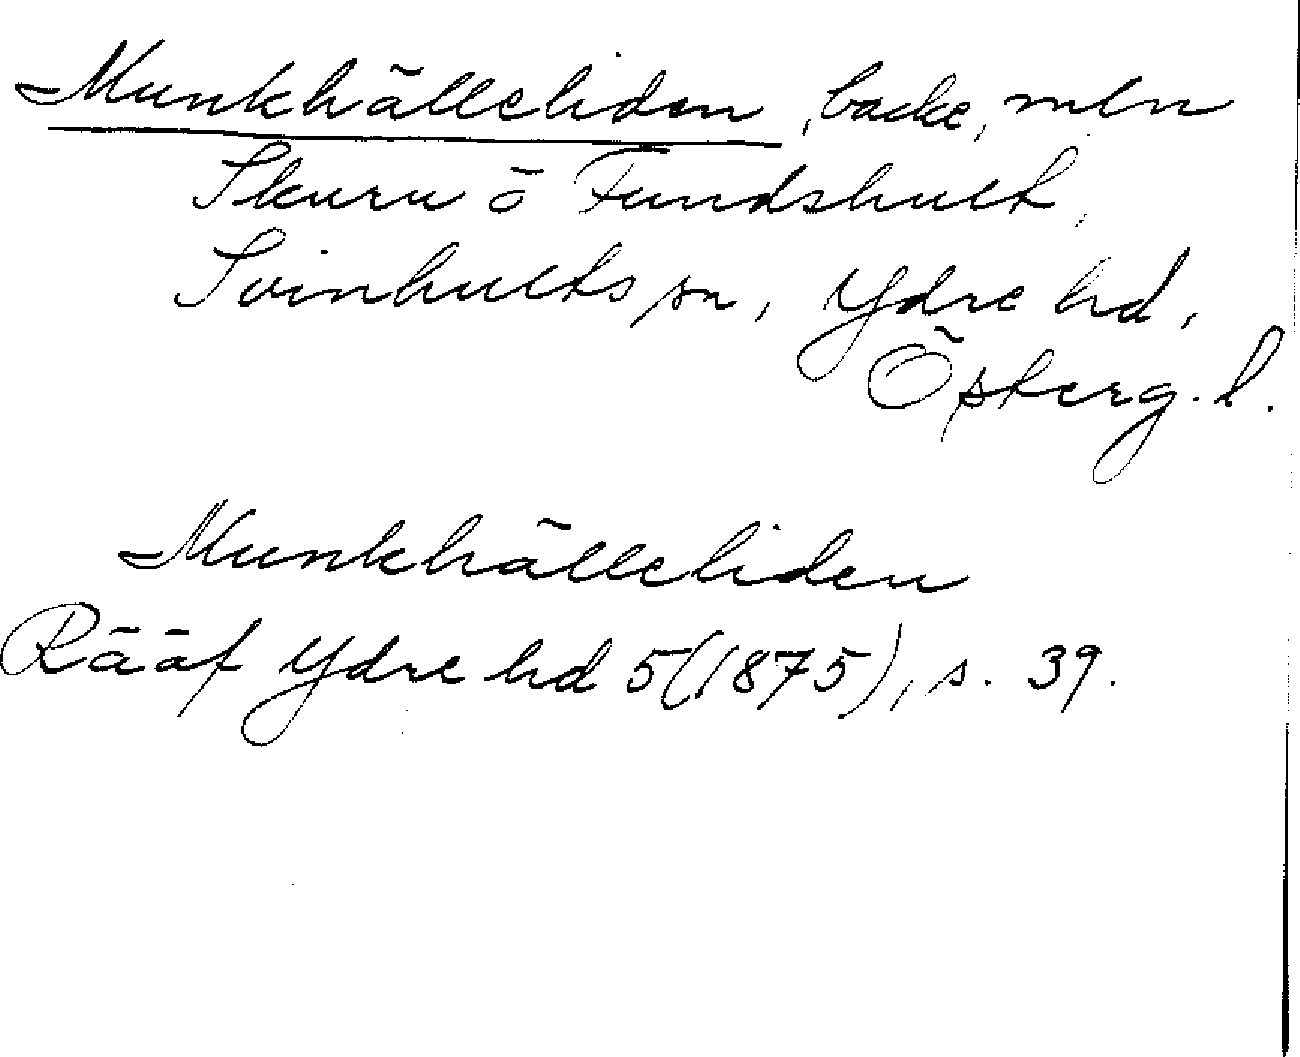 Munkhälleliden, backe, mln
Skuru ö Fundshult,
Svinhults sn, Ydre hd,
Österg. l.
Munkhälleliden
Rääf Ydre hd 5(1875), s. 39.